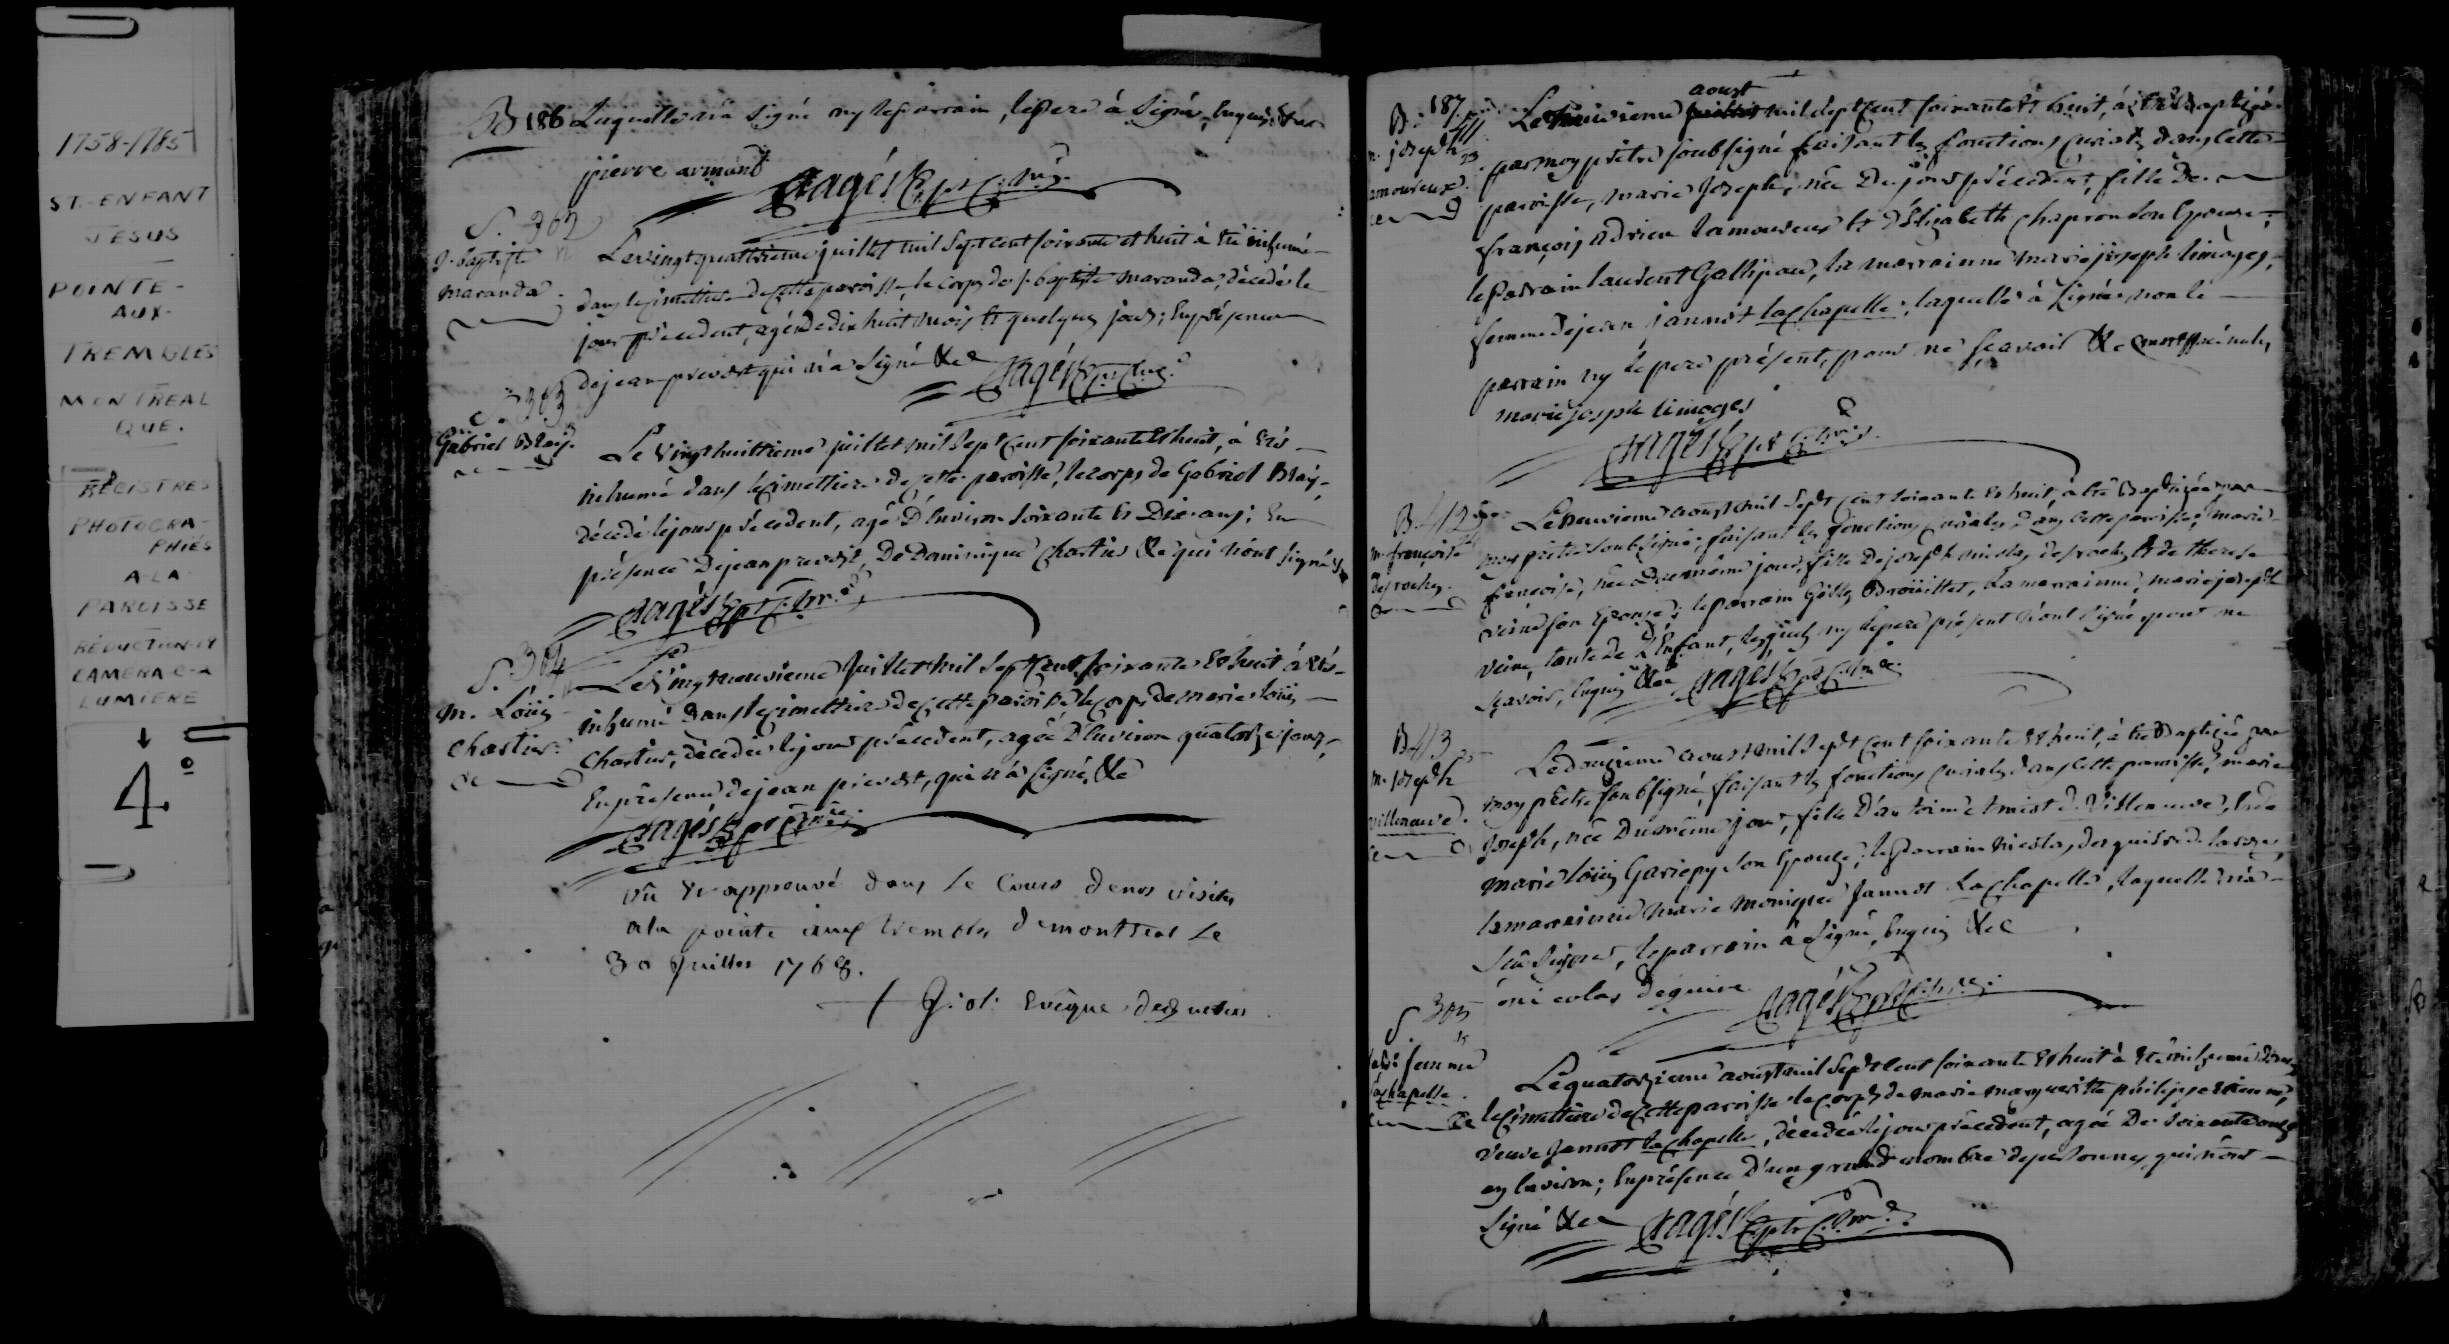 1758-1785
ST-ENFANT
JESUS
POINTE-
AUX-
TREMBLES
MONTREAL
QUE.
REGISTRES
PHOTOGRA-
PHIÉS
A-LA-
PAROISSE
RÉDUCTION-
CAMERA
LUMIERE
4º
B 186 Laquelle n'a signé ny le parrain, le pere à signé,
pierre armand
Sagés ptre
S. 302
J. baptiste
maranda
Le vingt quattrieme juillet mil sept cent soixante et huit à été inhumé
dans le cimettiere de cette paroisse, le corps de j. baptiste maranda, décédé le
jour précédent, agé de dix huit mois et quelques jours; en présence
de jean prevost qui n'a signé &c Sagés ptre
S. 303
Gabriel Blay.
Le vingt huittieme juillet mil sept cent soixante et huit, à été
inhumé dans le cimettiere de cette paroisse, le corps de Gabriel Blay,
décédé le jour précédent, agé d'environ soixante et dix ans; en
présence de jean prevost, de Dominique Chartier &c qui n'ont signés
Sagés ptre
S. 304
m. Loüis
Chartier
Le vingt neuvieme juillet mil sept cent soixante et huit à été
inhumé dans le cimettiere de cette paroisse le corps de marie loüis
Chartier, décédée le jour précédent, agée d'environ quatorze jours,
En présence de jean prevost, qui n'a signé, &c
Sagés ptre
Vû et approuvé dans le Cours de nos visites
a la pointe aux trembles de montreal le
30 Juillet 1768.
+ J: ol: Evêque de Quebec
B: 187
411
m. joseph
amoureux
aoust
Le neuvieme mil sept cent soixante et huit, à été Baptizée
par moy prêtre soubsigné faisant les fonctions curiales dans cette
paroisse, marie Joseph, née du jour précédent, fille de
françois Adrien lamoureux et d'Elizabeth Chapron son Epouse;
le Parrain laurent Gallipau, la marrainne marie joseph limoges,
femme de jean jannot lachapelle; laquelle à signée non le
parrain ny le pere présent, pour ne sçavoir &c
marie joseph limoges
Sagés ptre
B 412
m. françoise
desroches
Le neuvieme aoust mil sept cent soixante et huit, à été Baptizée par
moy prêtre soubsigné, faisant les fonctions curiales dans cette paroisse; marie
françoise, née du même jour, fille de joseph nicolas desroches et de therese
veine son Epouse; le parrain Gilles Broüillet, la marrainne, marie joseph
veine, tante de l'Enfant, lesquels ny le pere présent n'ont signé pour ne
sçavoir, &c Sagés ptre
B 413
m. joseph
villeneuve
Le douzieme aoust mil sept cent soixante et huit, à été Baptizée par
moy prêtre soubsigné, faisant les fonctions curiales dans cette paroisse, marie
Joseph, née du même jour, fille d'antoine de Villeneuve, et de
marie loüis Gariepy son Epouse; le Parrain nicolas
la marrainne marie monique Jannot Lachapelle, laquelle n'a
sçu signer, le parrain à signé, &c
nicolas deguire
Sagés ptre
S. 305
femme
lachapelle
Le quatorzieme aoust mil sept cent soixante et huit à été inhumé dans
le cimettiere de cette paroisse le corps de marie margueritte
veuve Jannot lachapelle, décédée le jour précédent, agée de soixante
en environ; En présence d'un grand nombre de personnes, qui n'ont
signé &c Sagés ptre